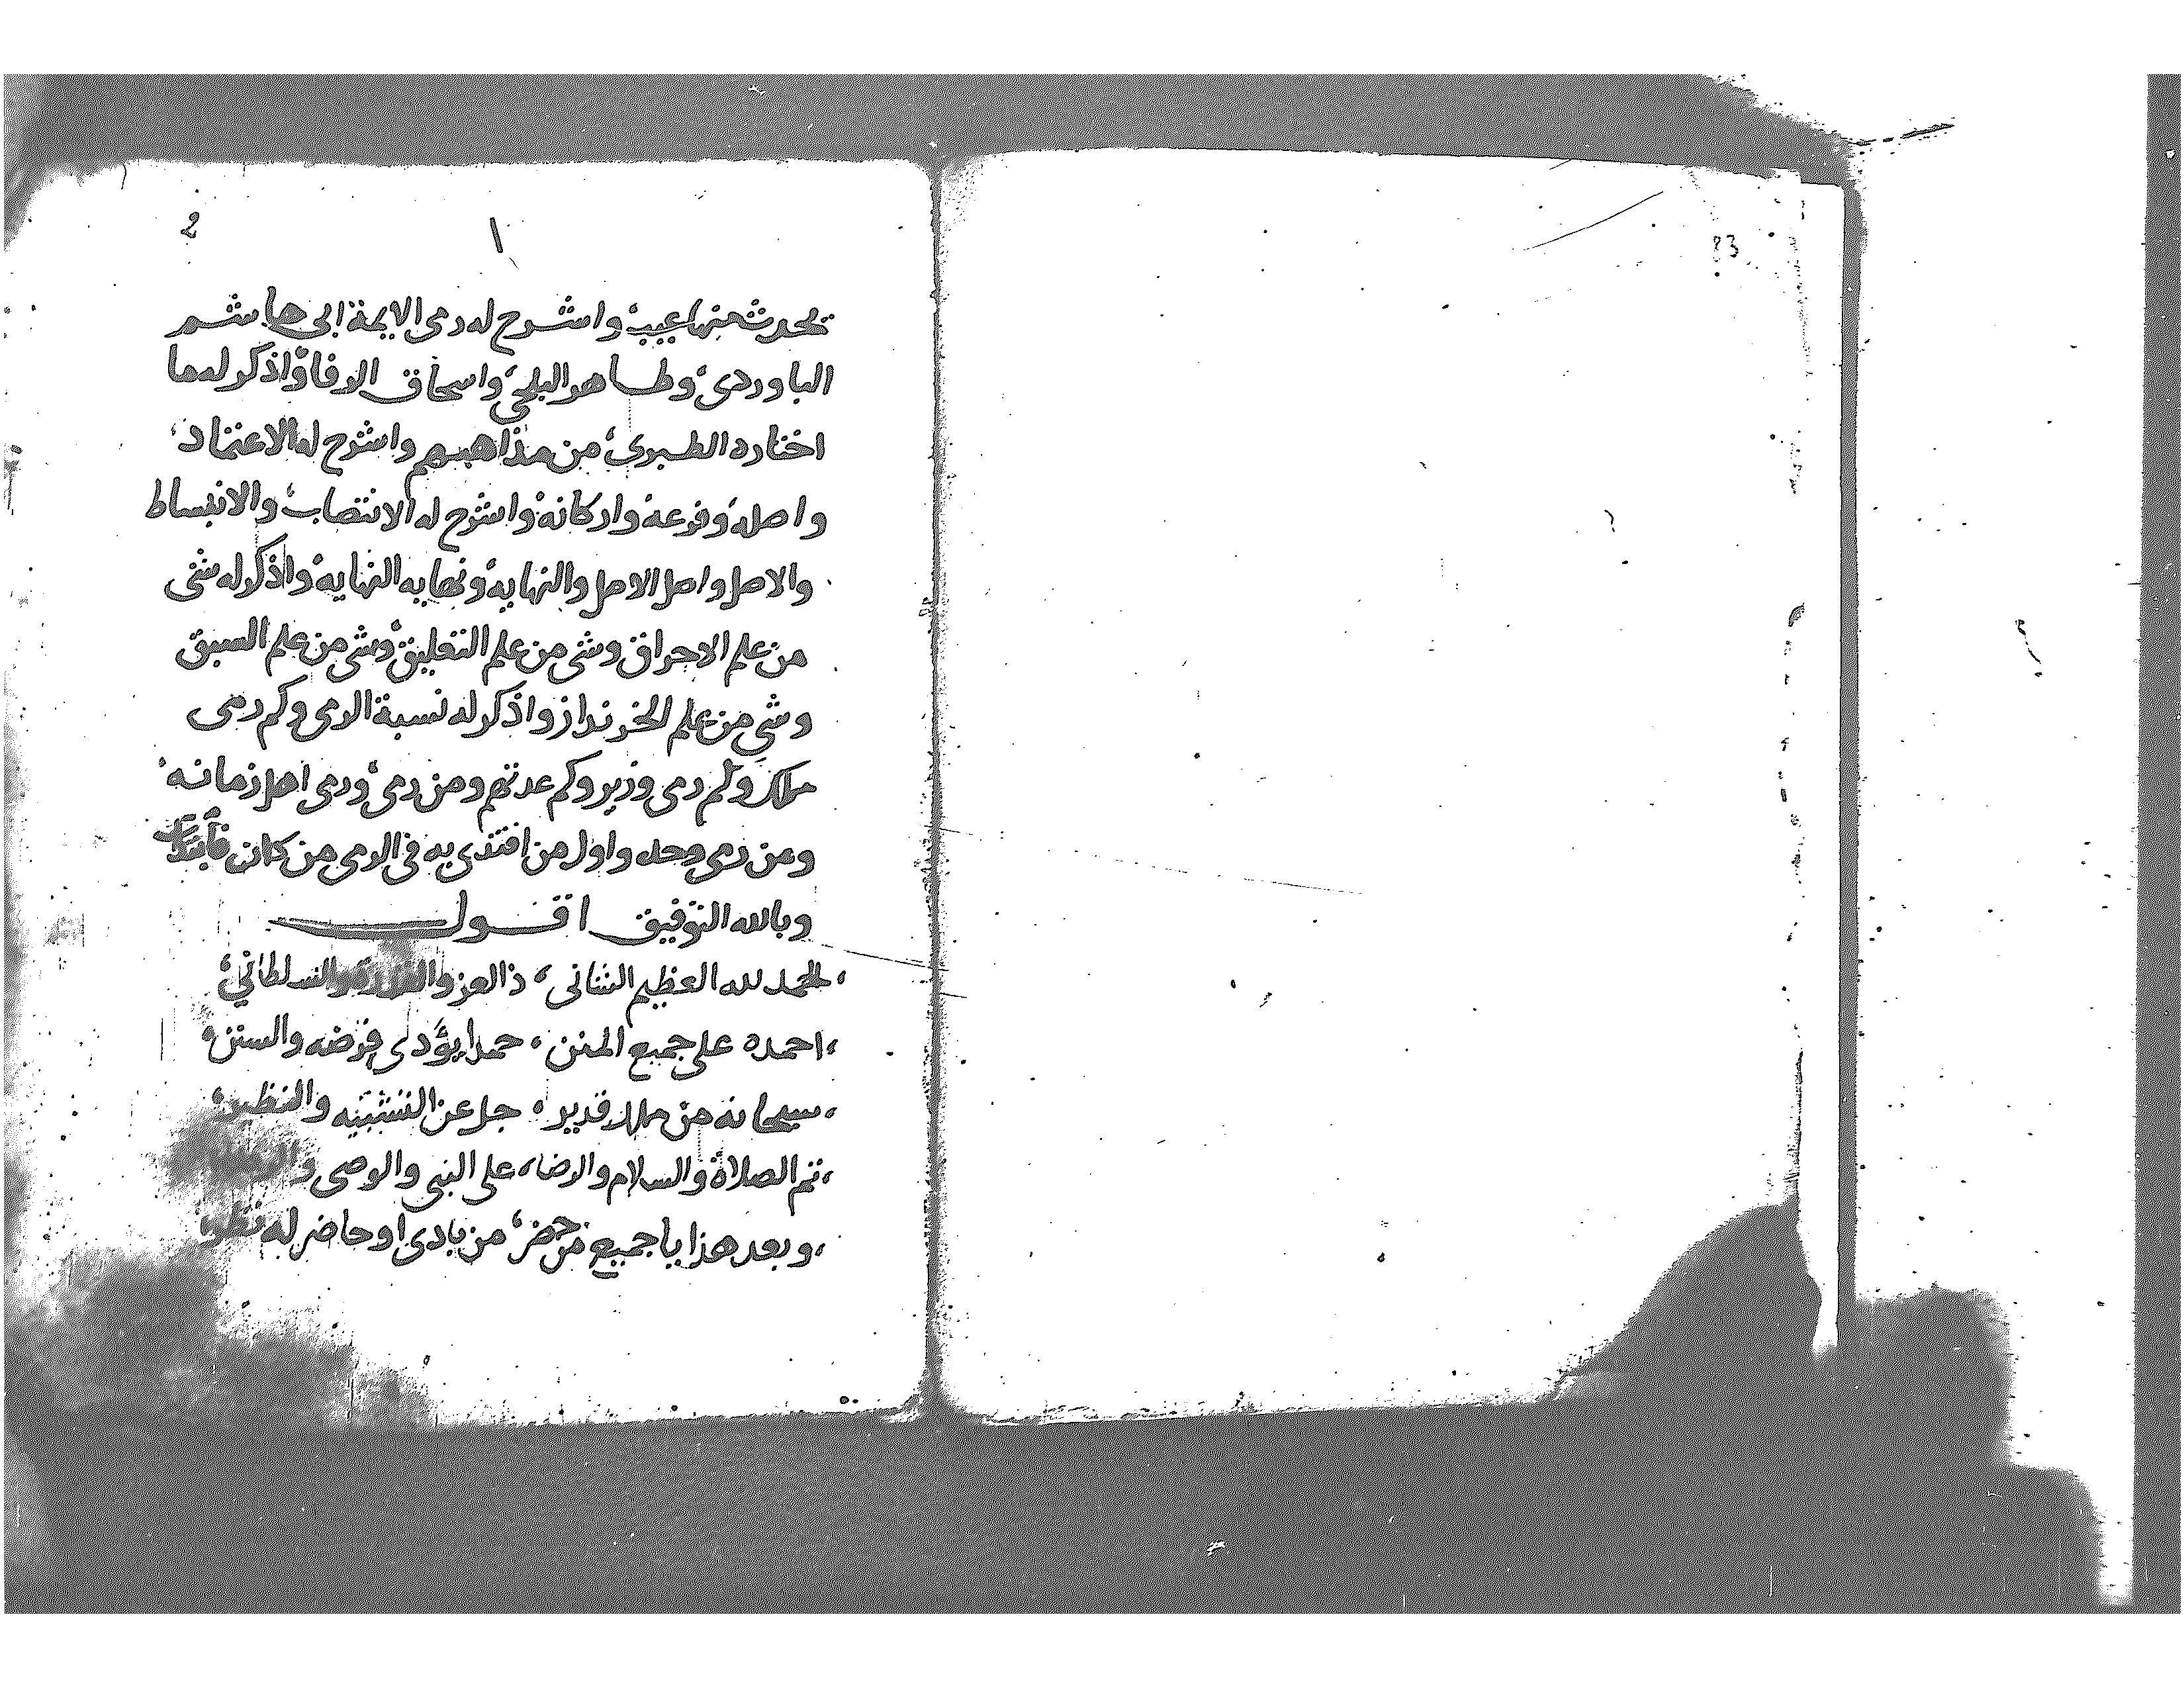 83
2
١
يحدث منها عيب واشرح له رمى الايمة ابى هاشم
الباوردى وطاهر البلخى واسحاق الرفا واذكر له ما
اختاره الطبرى من مذاهبهم واشرح له الاعتماد
واصله وفرعه واركانه واشرح له الانتصاب والانبساط
والاصل واصل الاصل والنهاية ونهايه النهايه واذكر له شى
من علم الاحراق وشى من علم التعليق وشى من علم السبق
وشى من علم الخرنداز واذكر له نسبة الرمى وكم رمى
ملك وكم رمى وزير وكم عدتهم ومن رمى ورمى اهل زمانه
ومن رمى وحده واول من اقتدى به فى الرمى من كان
وبالله التوفيق اقول
الحمد لله العظيم الشانى ذا العز والسلطانى
احمده على جميع المنن حمدا يؤدى فرضه والسنن
سبحانه من ملك قدير جل عن التشبيه والنظير
ثم الصلاة والسلام والرضا على النبى والوصى
وبعد هذا يا جميع من حضر من بادى او حاضر له نظر